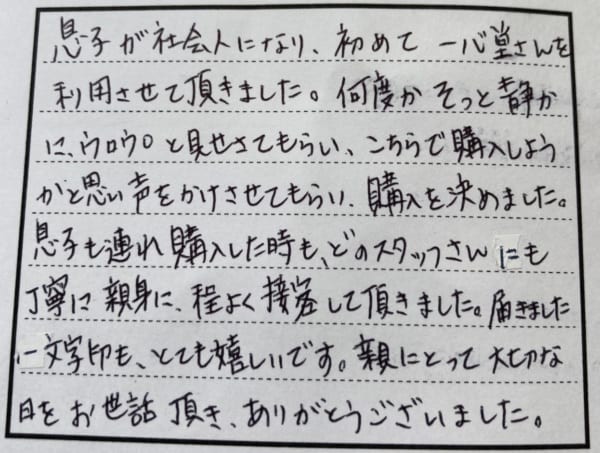 息子が社会人になり、初めて一心堂さんを
利用させて頂きました。何度かそっと静か
に、ウロウロと見せさてもらい、こちらで購入しよう
かと思い声をかけさせてもらい、購入を決めました。
息子も連れ購入した時も、どのスタッフさんにも
丁寧に親身に、程よく接客して頂きました。届きました
一文字印も、とても嬉しいです。親にとって大切な
日をお世話頂き、ありがとうございました。